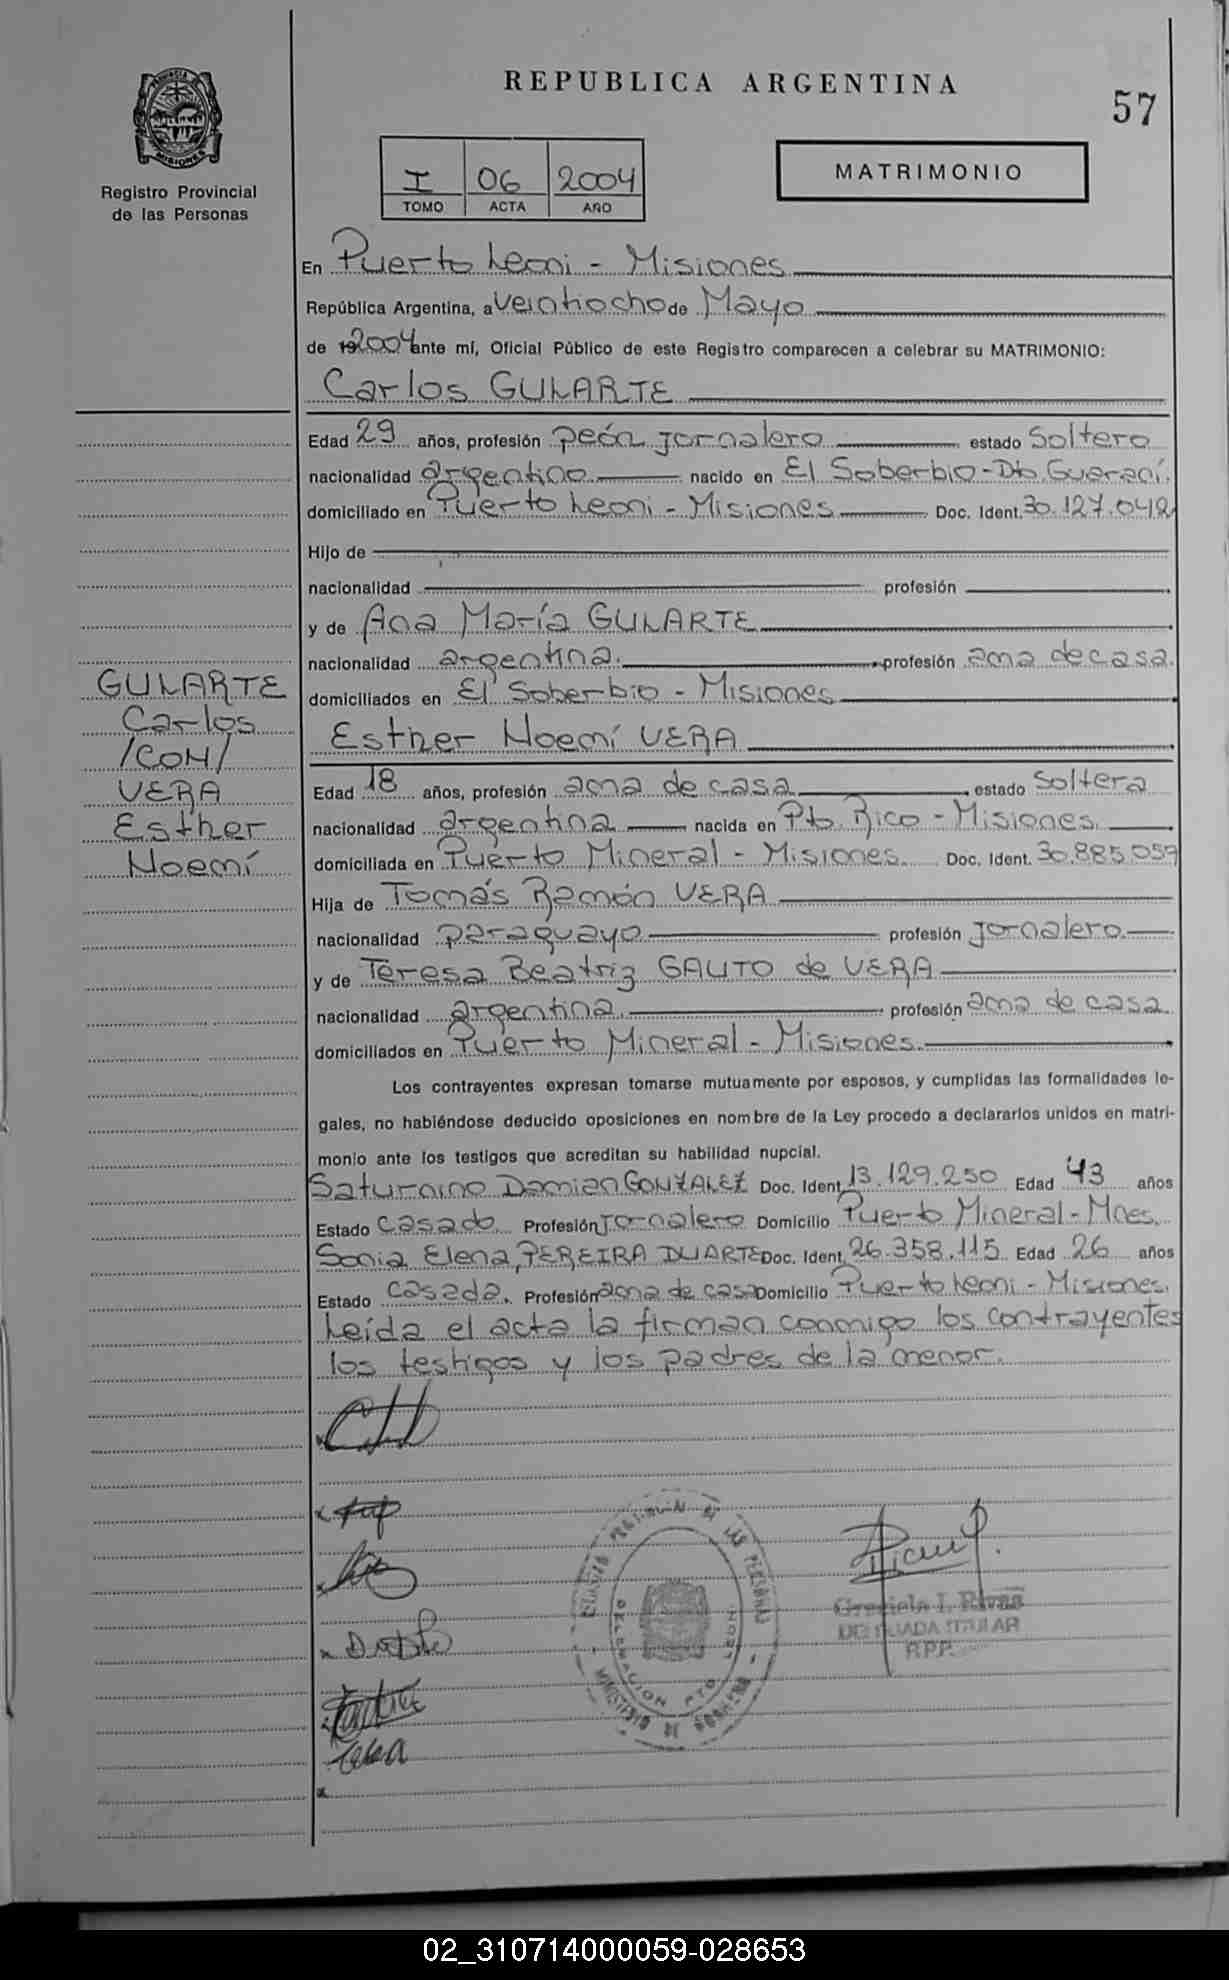 REPUBLICA ARGENTINA
57
PROVINCIA DE MISIONES
Registro Provincial
de las Personas
I 06 2004
TOMO ACTA AÑO
MATRIMONIO
En Puerto Leoni - Misiones
República Argentina, a veintiocho de Mayo
de 19 2004 ante mí, Oficial Público de este Registro comparecen a celebrar su MATRIMONIO:
Carlos GULARTE
Edad 29 años, profesión peón jornalero estado Soltero
nacionalidad argentino nacido en El Soberbio - Dto. Guaraní.
domiciliado en Puerto Leoni - Misiones Doc. Ident. 30.127.042
Hijo de
nacionalidad profesión
y de Ana María GULARTE
nacionalidad argentina. profesión ama de casa.
domiciliados en El Soberbio - Misiones
GULARTE
Carlos
/CON/
VERA
Esther
Noemí
Esther Noemí VERA
Edad 18 años, profesión ama de casa estado Soltera
nacionalidad argentina nacida en Pto Rico - Misiones.
domiciliada en Puerto Mineral - Misiones. Doc. Ident. 30.885.059
Hija de Tomás Ramón VERA
nacionalidad paraguayo profesión Jornalero.
y de Teresa Beatriz GAUTO de VERA
nacionalidad argentina. profesión ama de casa.
domiciliados en Puerto Mineral - Misiones.
Los contrayentes expresan tomarse mutuamente por esposos, y cumplidas las formalidades le-
gales, no habiéndose deducido oposiciones en nombre de la Ley procedo a declararlos unidos en matri-
monio ante los testigos que acreditan su habilidad nupcial.
Saturnino Damian GONZALEZ Doc. Ident. 13.129.250 Edad 43 años
Estado Casado. Profesión Jornalero Domicilio Puerto Mineral - Mnes.
Sonia Elena PEREIRA DUARTE Doc. Ident. 26.358.115 Edad 26 años
Estado Casada. Profesión ama de casa Domicilio Puerto Leoni - Misiones.
Leída el acta la firman conmigo los contrayentes
los testigos y los padres de la menor.
Graciela I. Rivas
DELEGADA TITULAR
R.P.P.
REGISTRO PROVINCIAL DE LAS PERSONAS
DELEGACION PTO. LEONI
MINISTERIO DE GOBIERNO
02_310714000059-028653